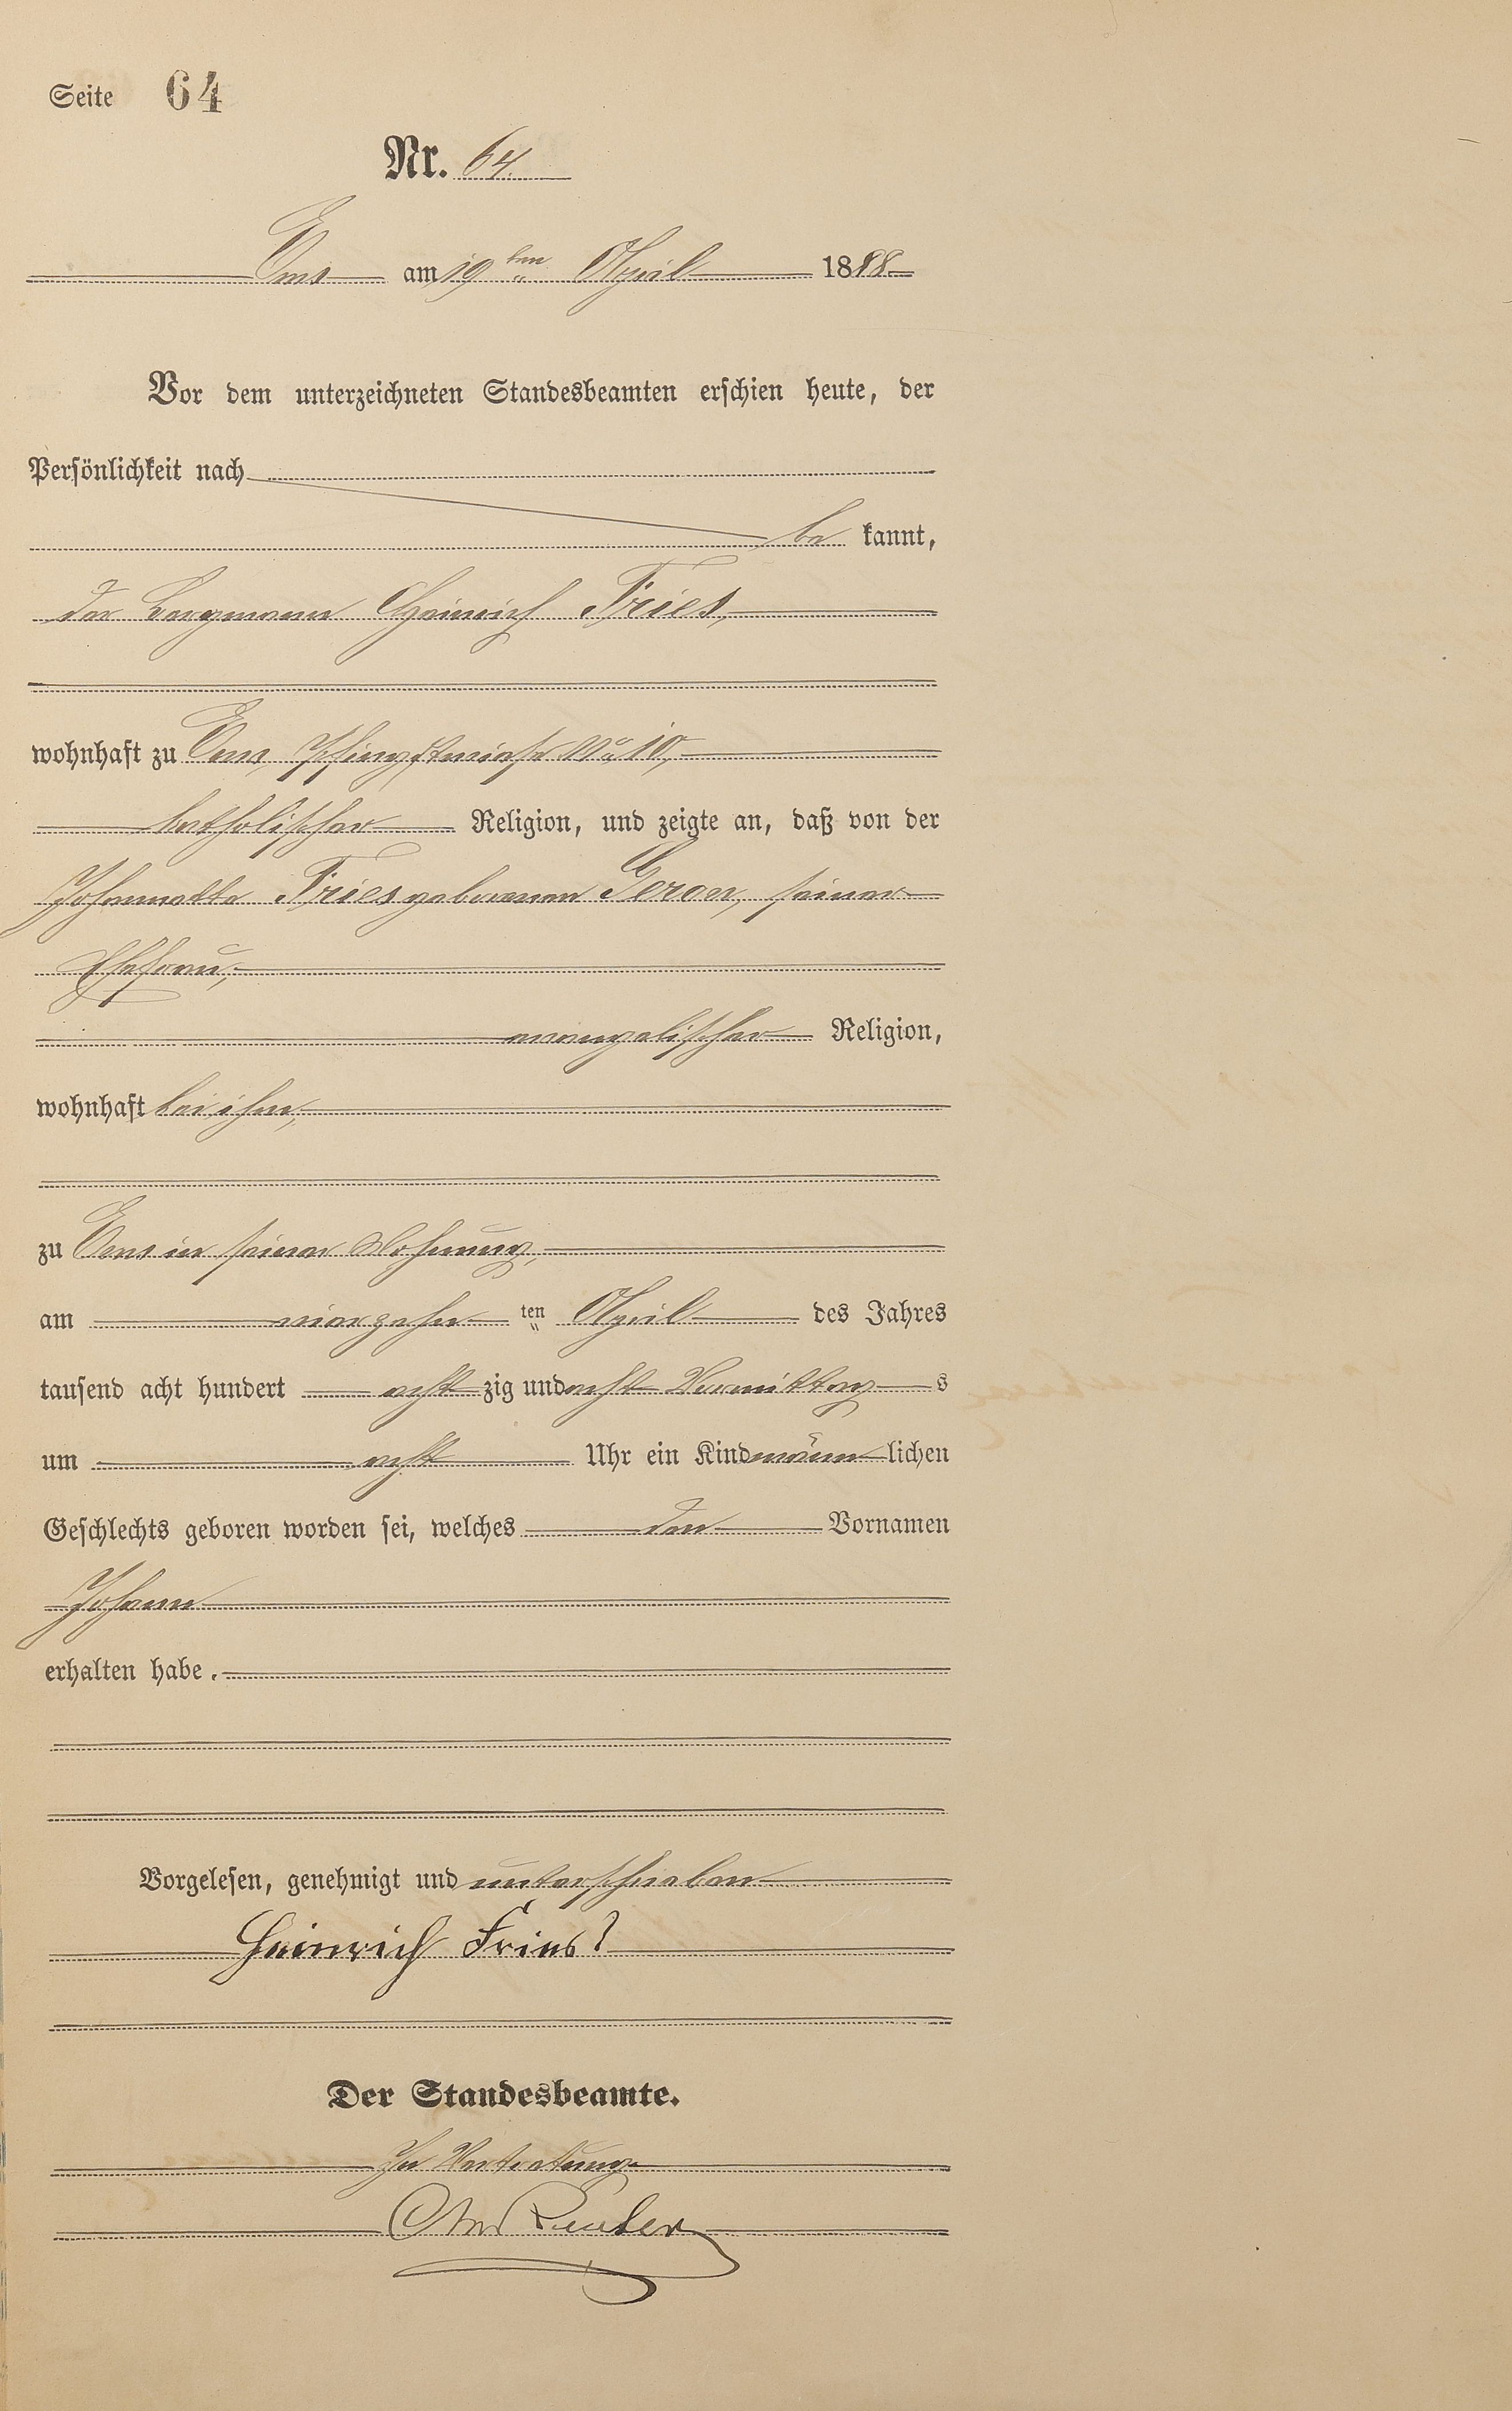 Seite 64
Nr. 64.
Ems am 19ten April 1888
Vor dem unterzeichneten Standesbeamten erschien heute, der
Persönlichkeit nach
be kannt,
der Bergmann Heinrich Fries,
wohnhaft zu Ems, Pfingstwiese No 10,
katholischer Religion, und zeigte an, daß von der
Fries geborenen seiner
Ehefrau,
evangelischer Religion,
wohnhaft bei ihm,
zu Ems in seiner Wohnung,
am vierzehn ten April des Jahres
tausend acht hundert acht zig und acht Vormittag s
um acht Uhr ein Kind männ lichen
Geschlechts geboren worden sei, welches den Vornamen
Johann
erhalten habe.
Vorgelesen, genehmigt und unterschrieben
Heinrich Fries
Der Standesbeamte.
In Vertretung